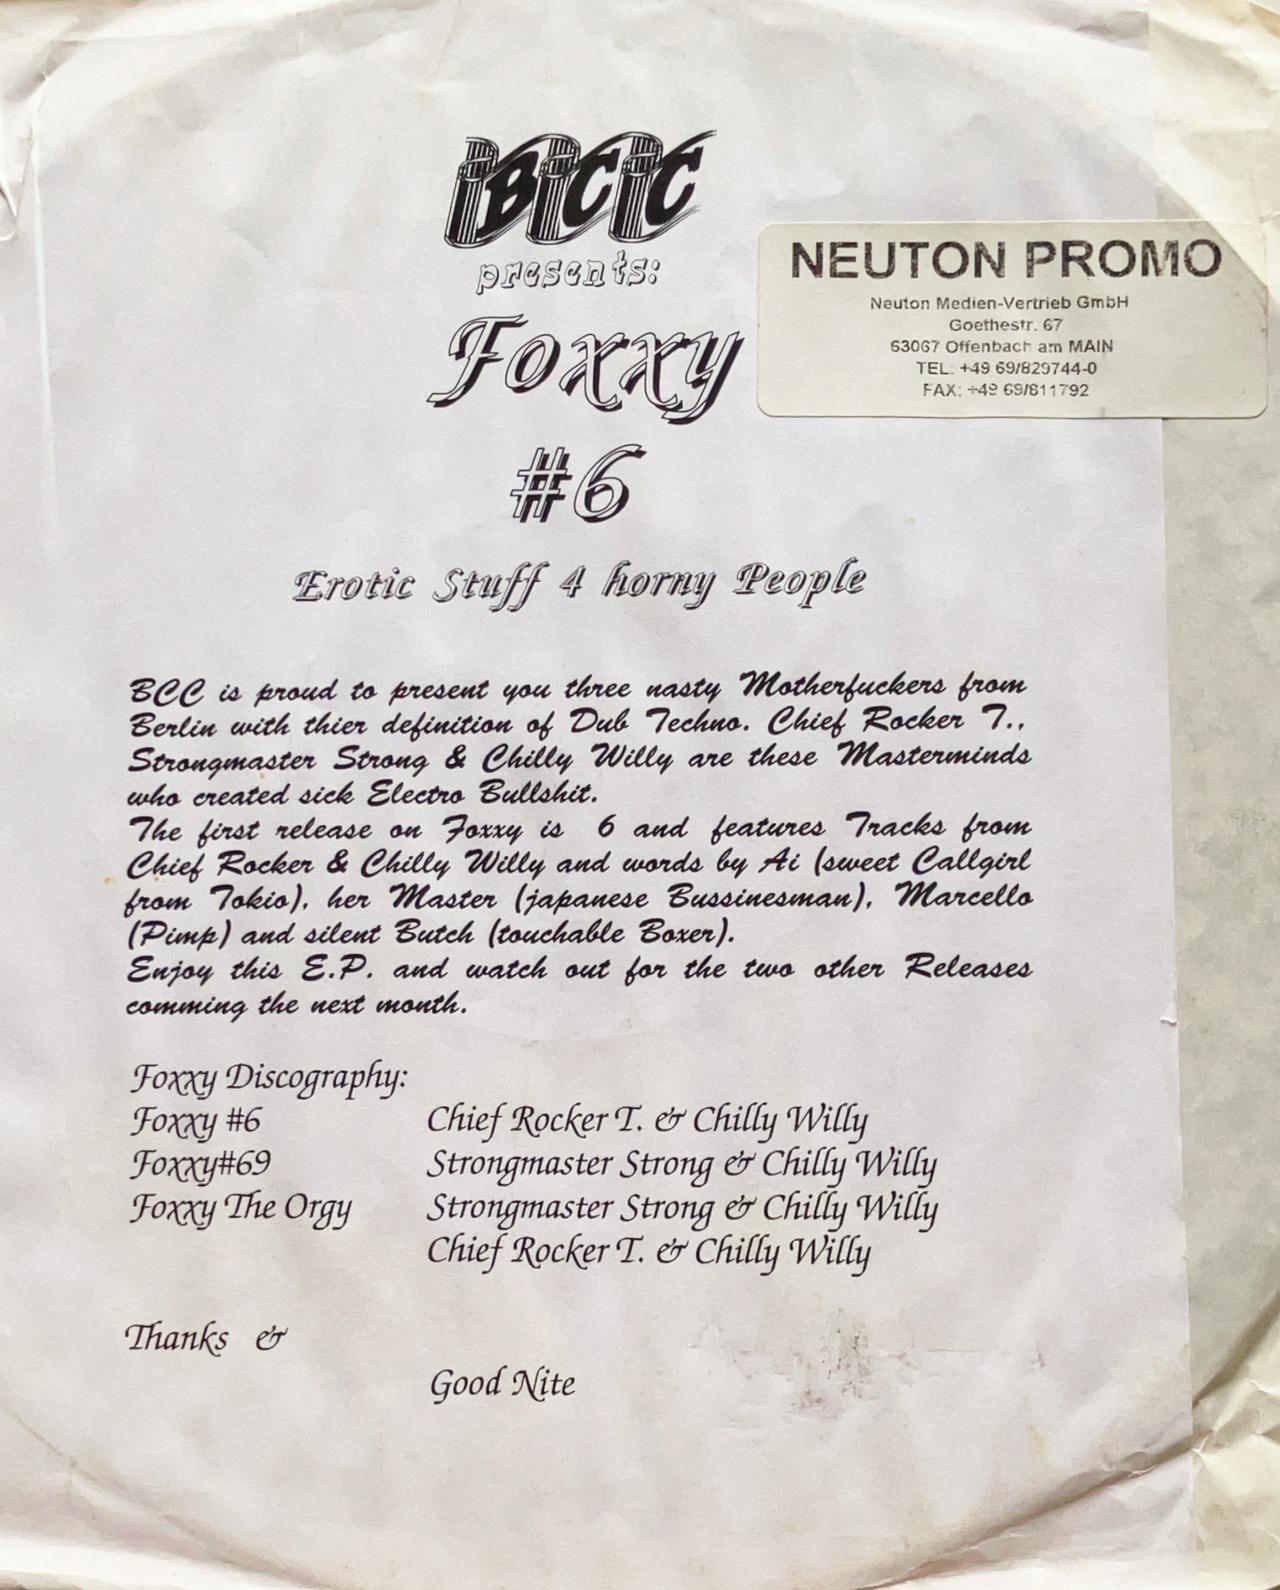 BCC
presents:
Foxxy
#6
Erotic Stuff 4 horny People
NEUTON PROMO
Neuton Medien-Vertrieb GmbH
Goethestr. 67
63067 Offenbach am MAIN
TEL: +49 69/829744-0
FAX: +49 69/811792
BCC is proud to present you three nasty Motherfuckers from
Berlin with thier definition of Dub Techno. Chief Rocker T.,
Strongmaster Strong & Chilly Willy are these Masterminds
who created sick Electro Bullshit.
The first release on Foxxy is 6 and features Tracks from
Chief Rocker & Chilly Willy and words by Ai (sweet Callgirl
from Tokio), her Master (japanese Bussinesman), Marcello
(Pimp) and silent Butch (touchable Boxer).
Enjoy this E.P. and watch out for the two other Releases
comming the next month.
Foxxy Discography:
Foxxy #6 Chief Rocker T. & Chilly Willy
Foxxy#69 Strongmaster Strong & Chilly Willy
Foxxy The Orgy Strongmaster Strong & Chilly Willy
Chief Rocker T. & Chilly Willy
Thanks &
Good Nite